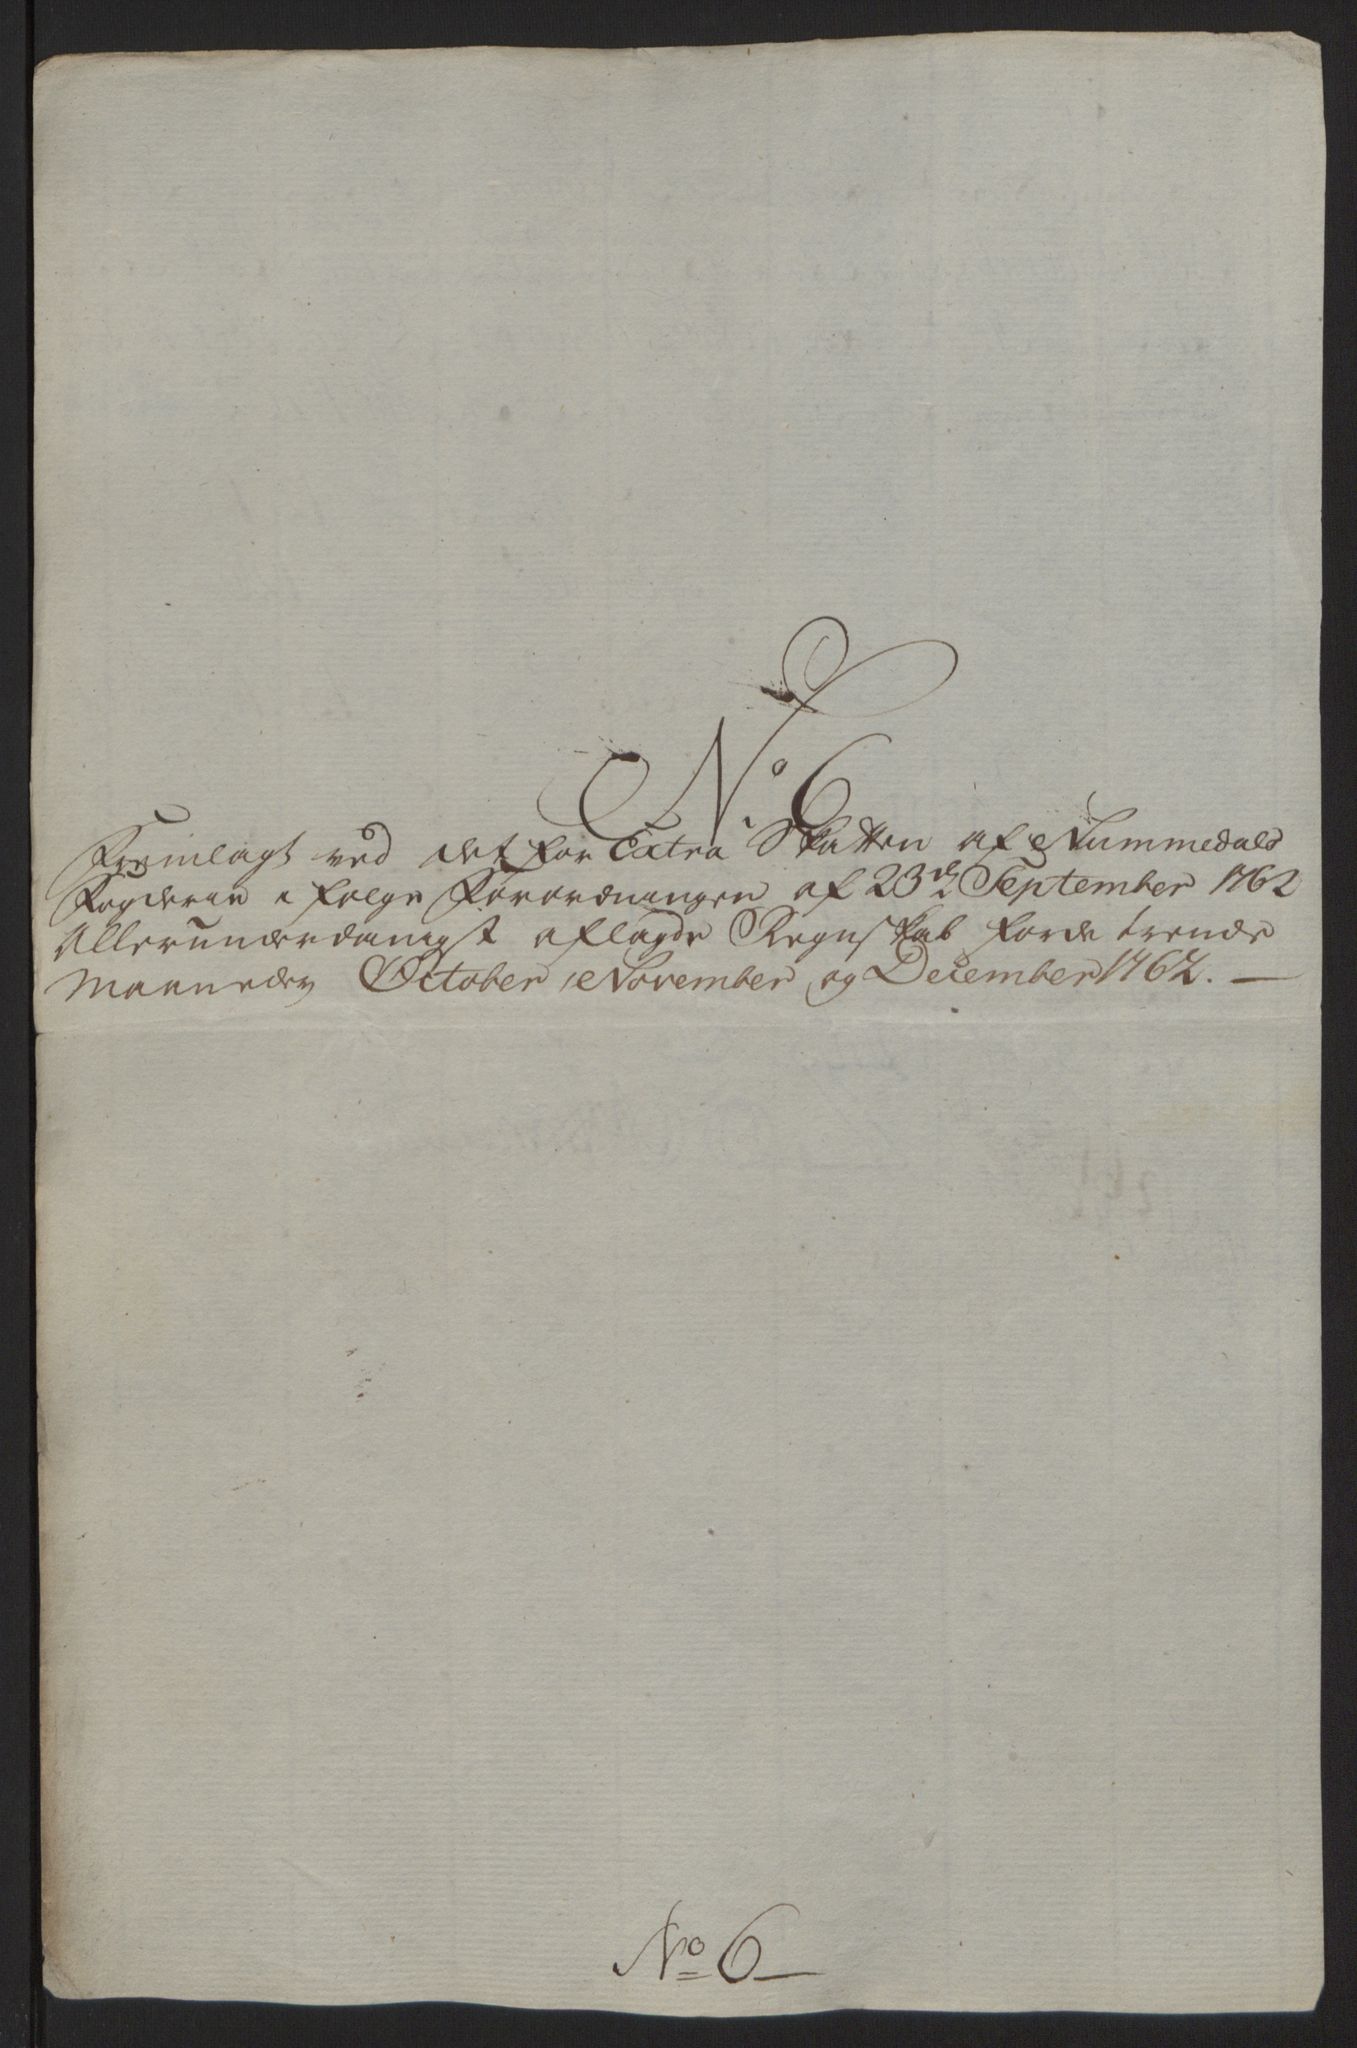 No 6
Fremlagt ved det for Extra Skatten af Nummedals
Fogderie i følge Forordningen af 23de September 1762
Allerunderdanigst aflagde Regnskab for de trende
Maaneder October, November og December 1762. —
No 6